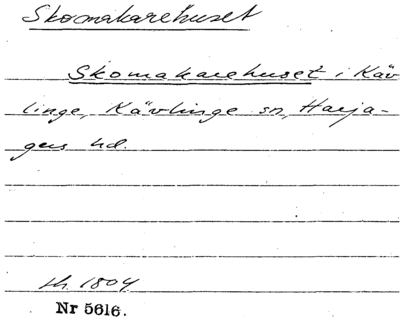 Skomakarehuset
Skomakarehuset i Käv
linge, Kävlinge sn, Harja-
gers hd.
lh. 1804
Nr 5616.